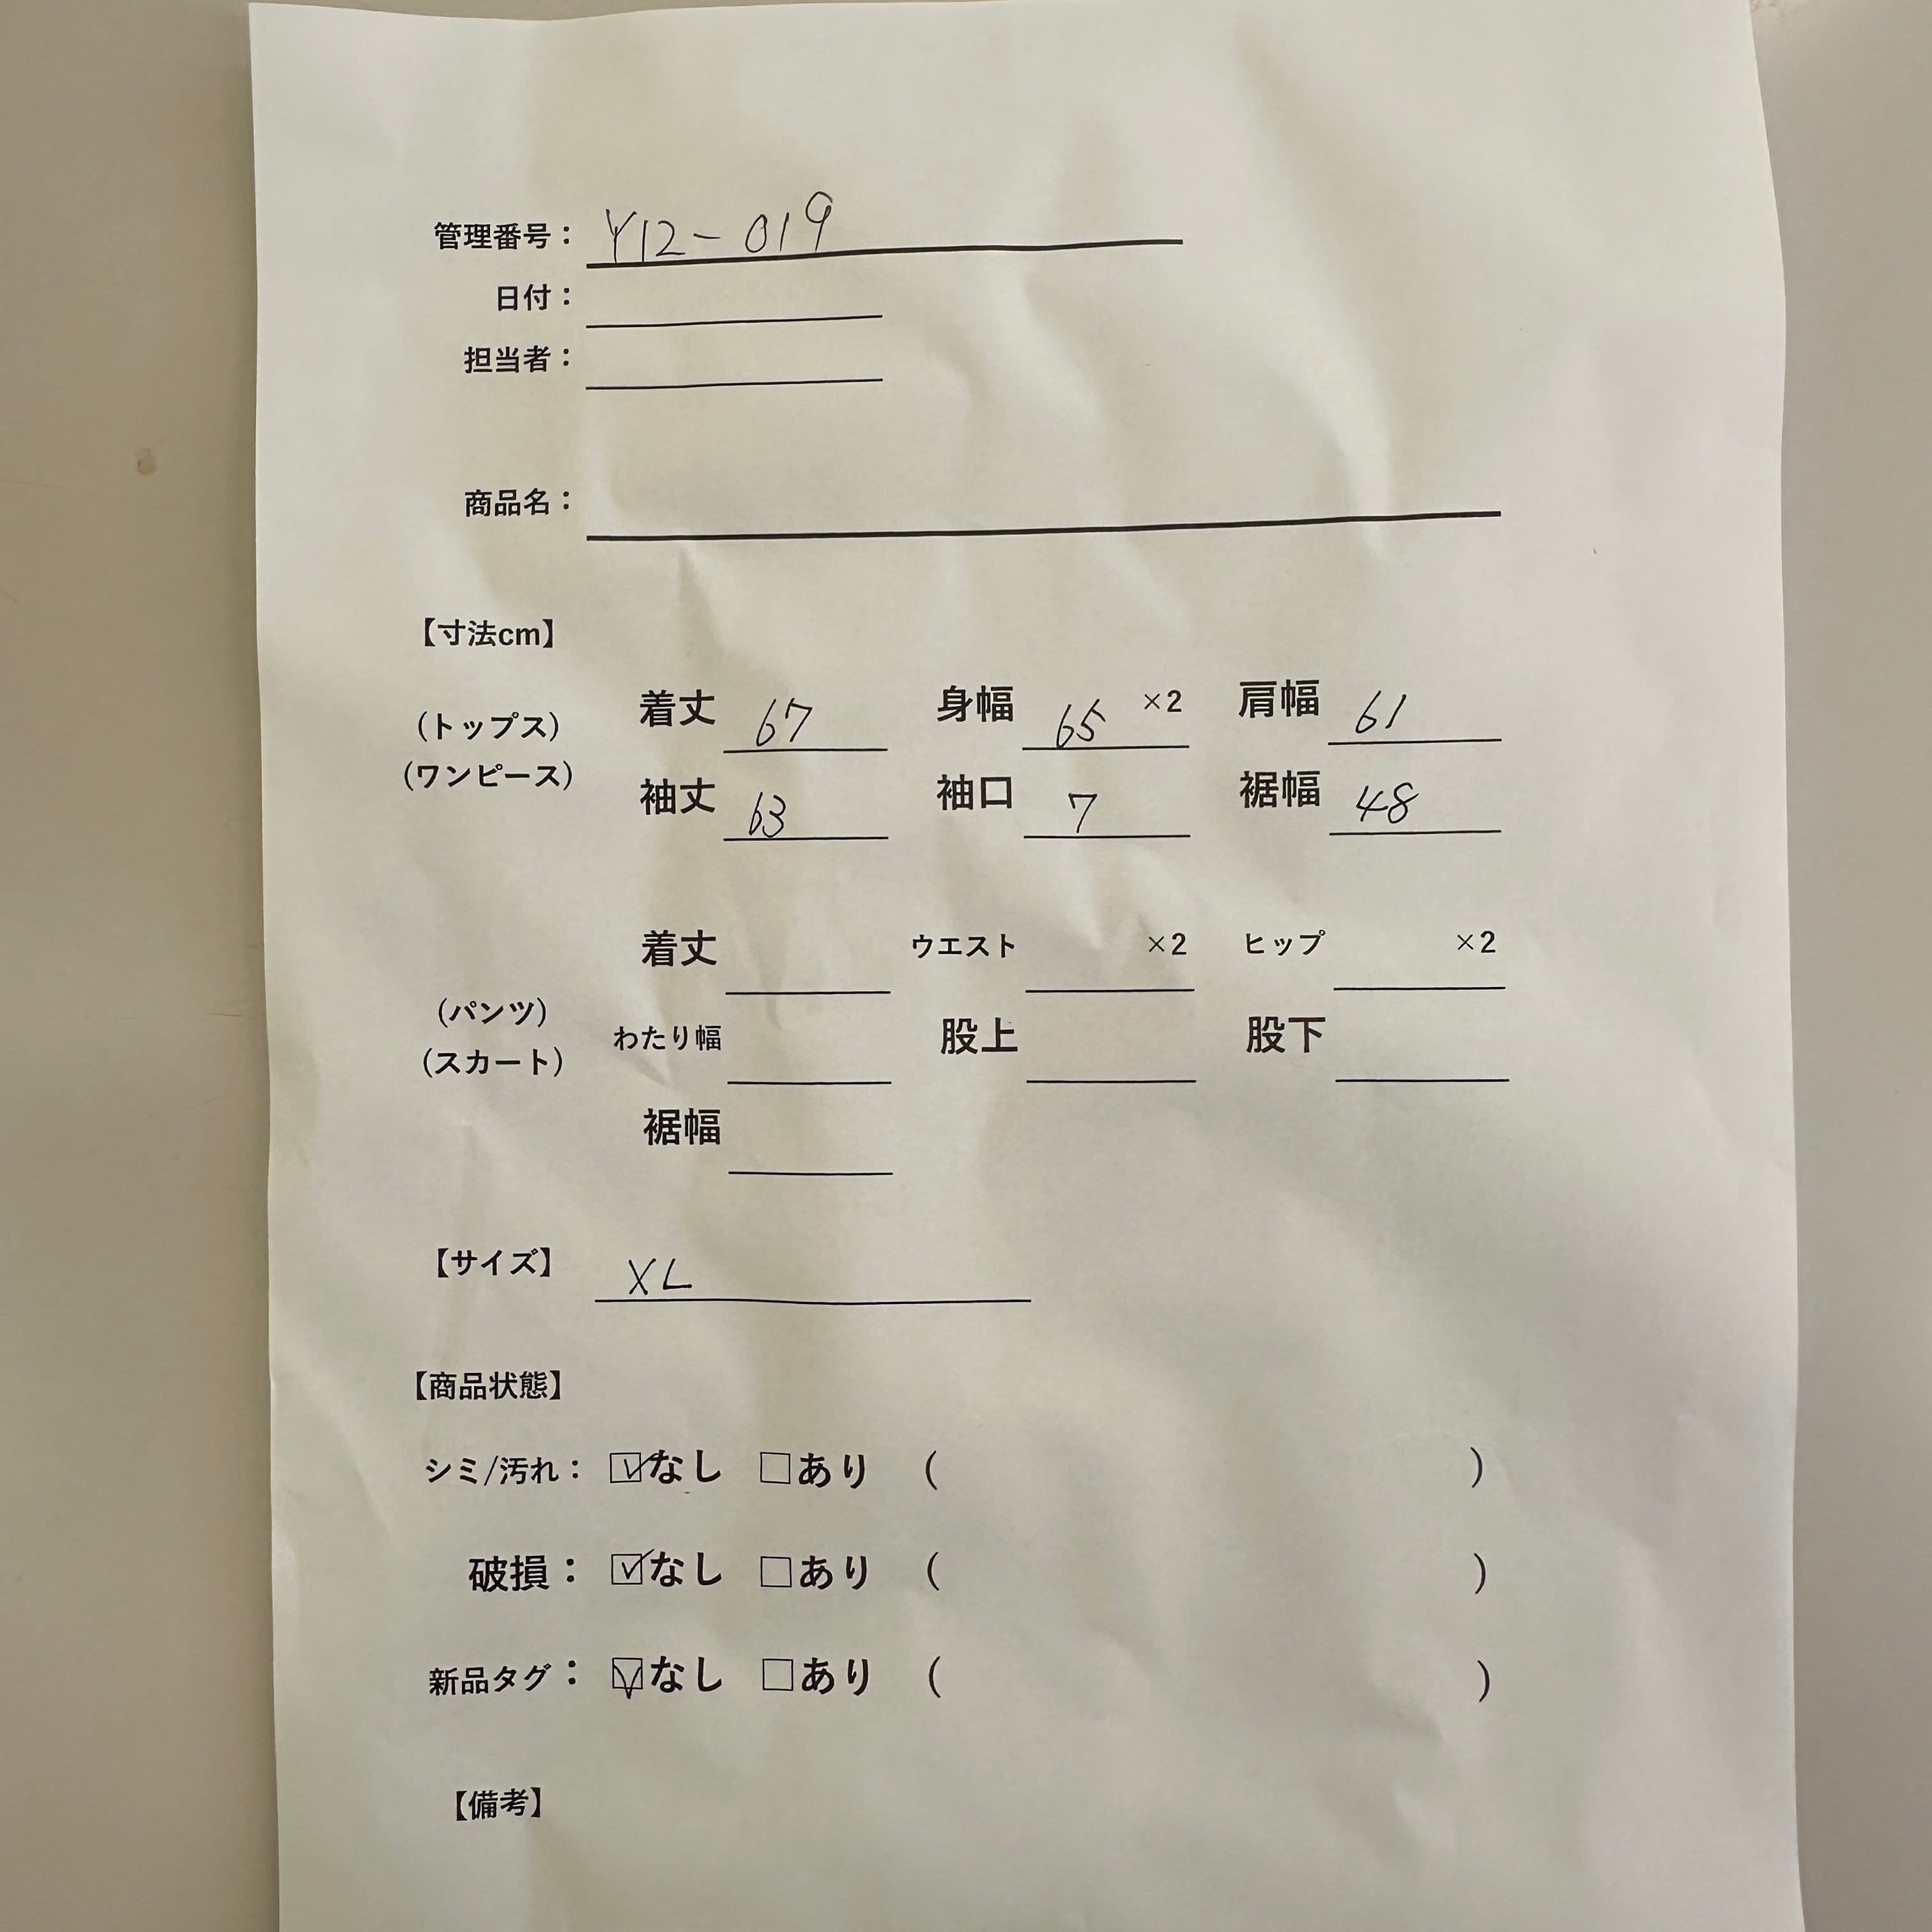 管理番号： Y12-019
日付：
担当者：
商品名：
【寸法cm】
（トップス）
（ワンピース）
着丈 67 身幅 65 ×2 肩幅 61
袖丈 63 袖口 7 裾幅 48
（パンツ）
（スカート）
着丈 ウエスト ×2 ヒップ ×2
わたり幅 股上 股下
裾幅
【サイズ】 XL
【商品状態】
シミ/汚れ： ☑なし □あり （ ）
破損： ☑なし □あり （ ）
新品タグ： ☑なし □あり （ ）
【備考】